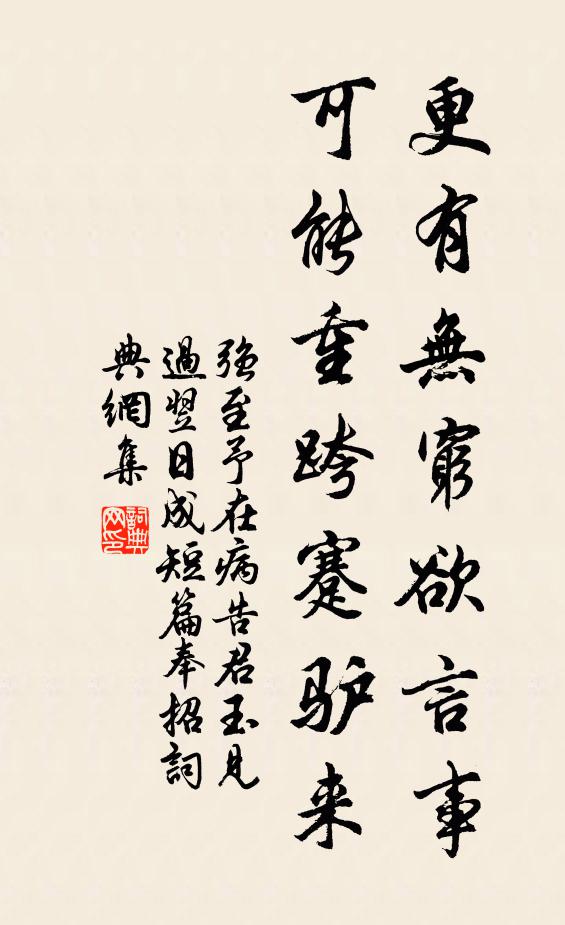 更有無窮欲言事
可能重跨蹇驴来
强至予在病告君玉見
過翌日成短篇奉招詞
典網集
詞典
网印